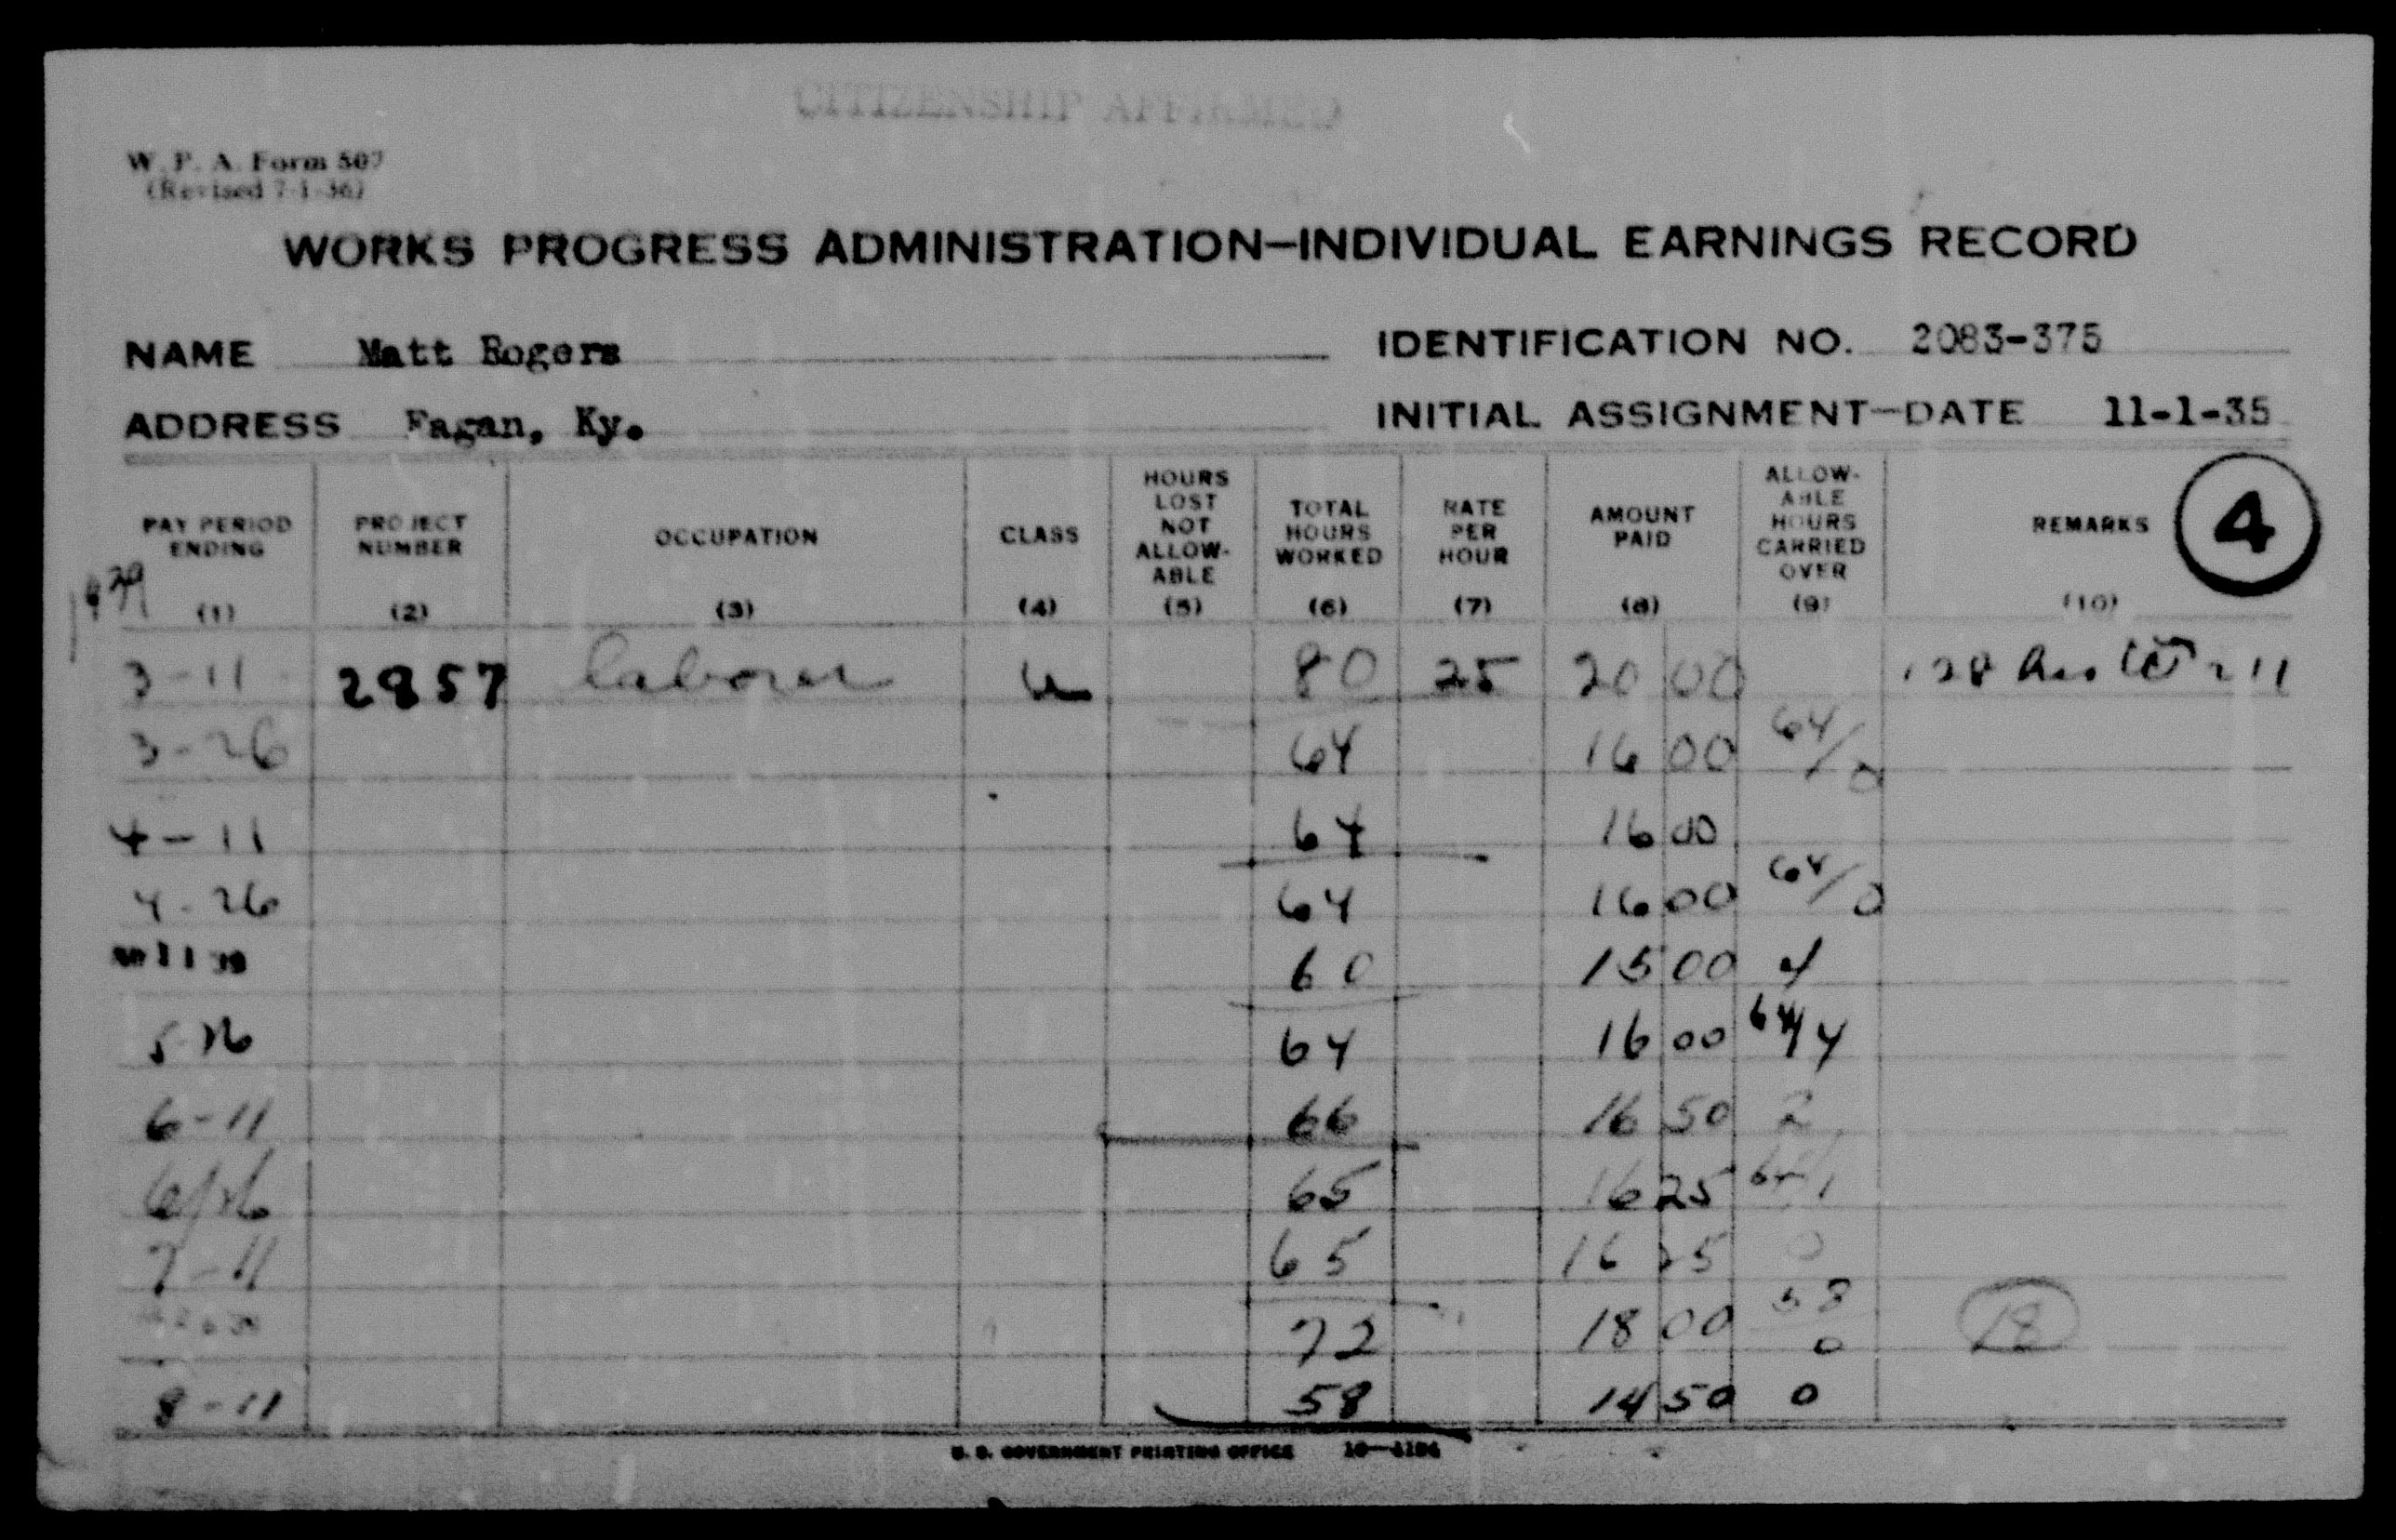 CITIZENSHIP AFFIRMED
W. P. A. Form 507
(Revised 7-1-36)
WORKS PROGRESS ADMINISTRATION—INDIVIDUAL EARNINGS RECORD
NAME Matt Rogers IDENTIFICATION NO. 2083-375
ADDRESS Fagan, Ky. INITIAL ASSIGNMENT—DATE 11-1-35
PAY PERIOD ENDING (1) PROJECT NUMBER (2) OCCUPATION (3) CLASS (4) HOURS LOST NOT ALLOW-ABLE (5) TOTAL HOURS WORKED (6) RATE PER HOUR (7) AMOUNT PAID (8) ALLOW-ABLE HOURS CARRIED OVER (9) REMARKS (10) 4
3-11 2857 laborer u 80 25 20 00 128 hrs 2 11
3-26 64 16 00 64/0
4-11 64 16 00
4-26 64 16 00 64/0
11 39 60 15 00 4
5-26 64 16 00 64/4
6-11 66 16 50 2
6/26 65 16 25
7-11 65 16 25 0
72 18 00 58 0 18
8-11 58 14 50 0
U. S. GOVERNMENT PRINTING OFFICE